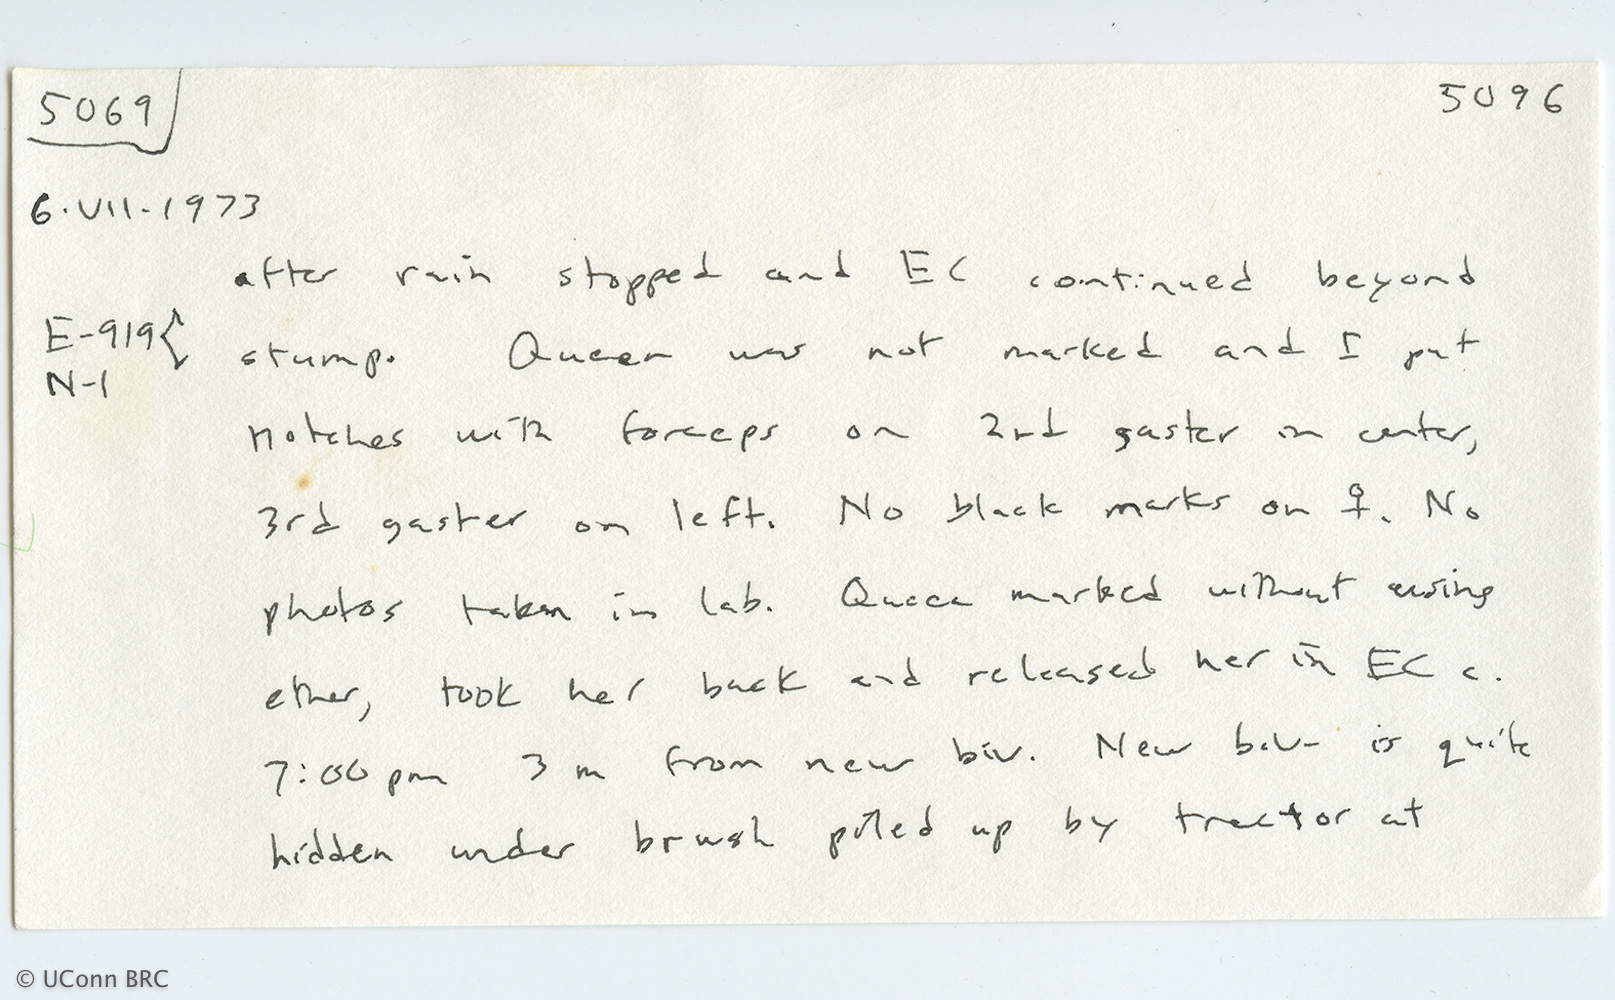 5069
5096
6.VII.1973
after rain stopped and EC continued beyond
E-919 { stump. Queen was not marked and I put
N-1
notches with forceps on 2nd gaster in center,
3rd gaster on left. No black marks on ♀. No
photos taken in lab. Queen marked without using
ether, took her back and released her in EC c.
7:00 pm 3 m from new biv. New biv. is quite
hidden under brush piled up by tractor at
© UConn BRC